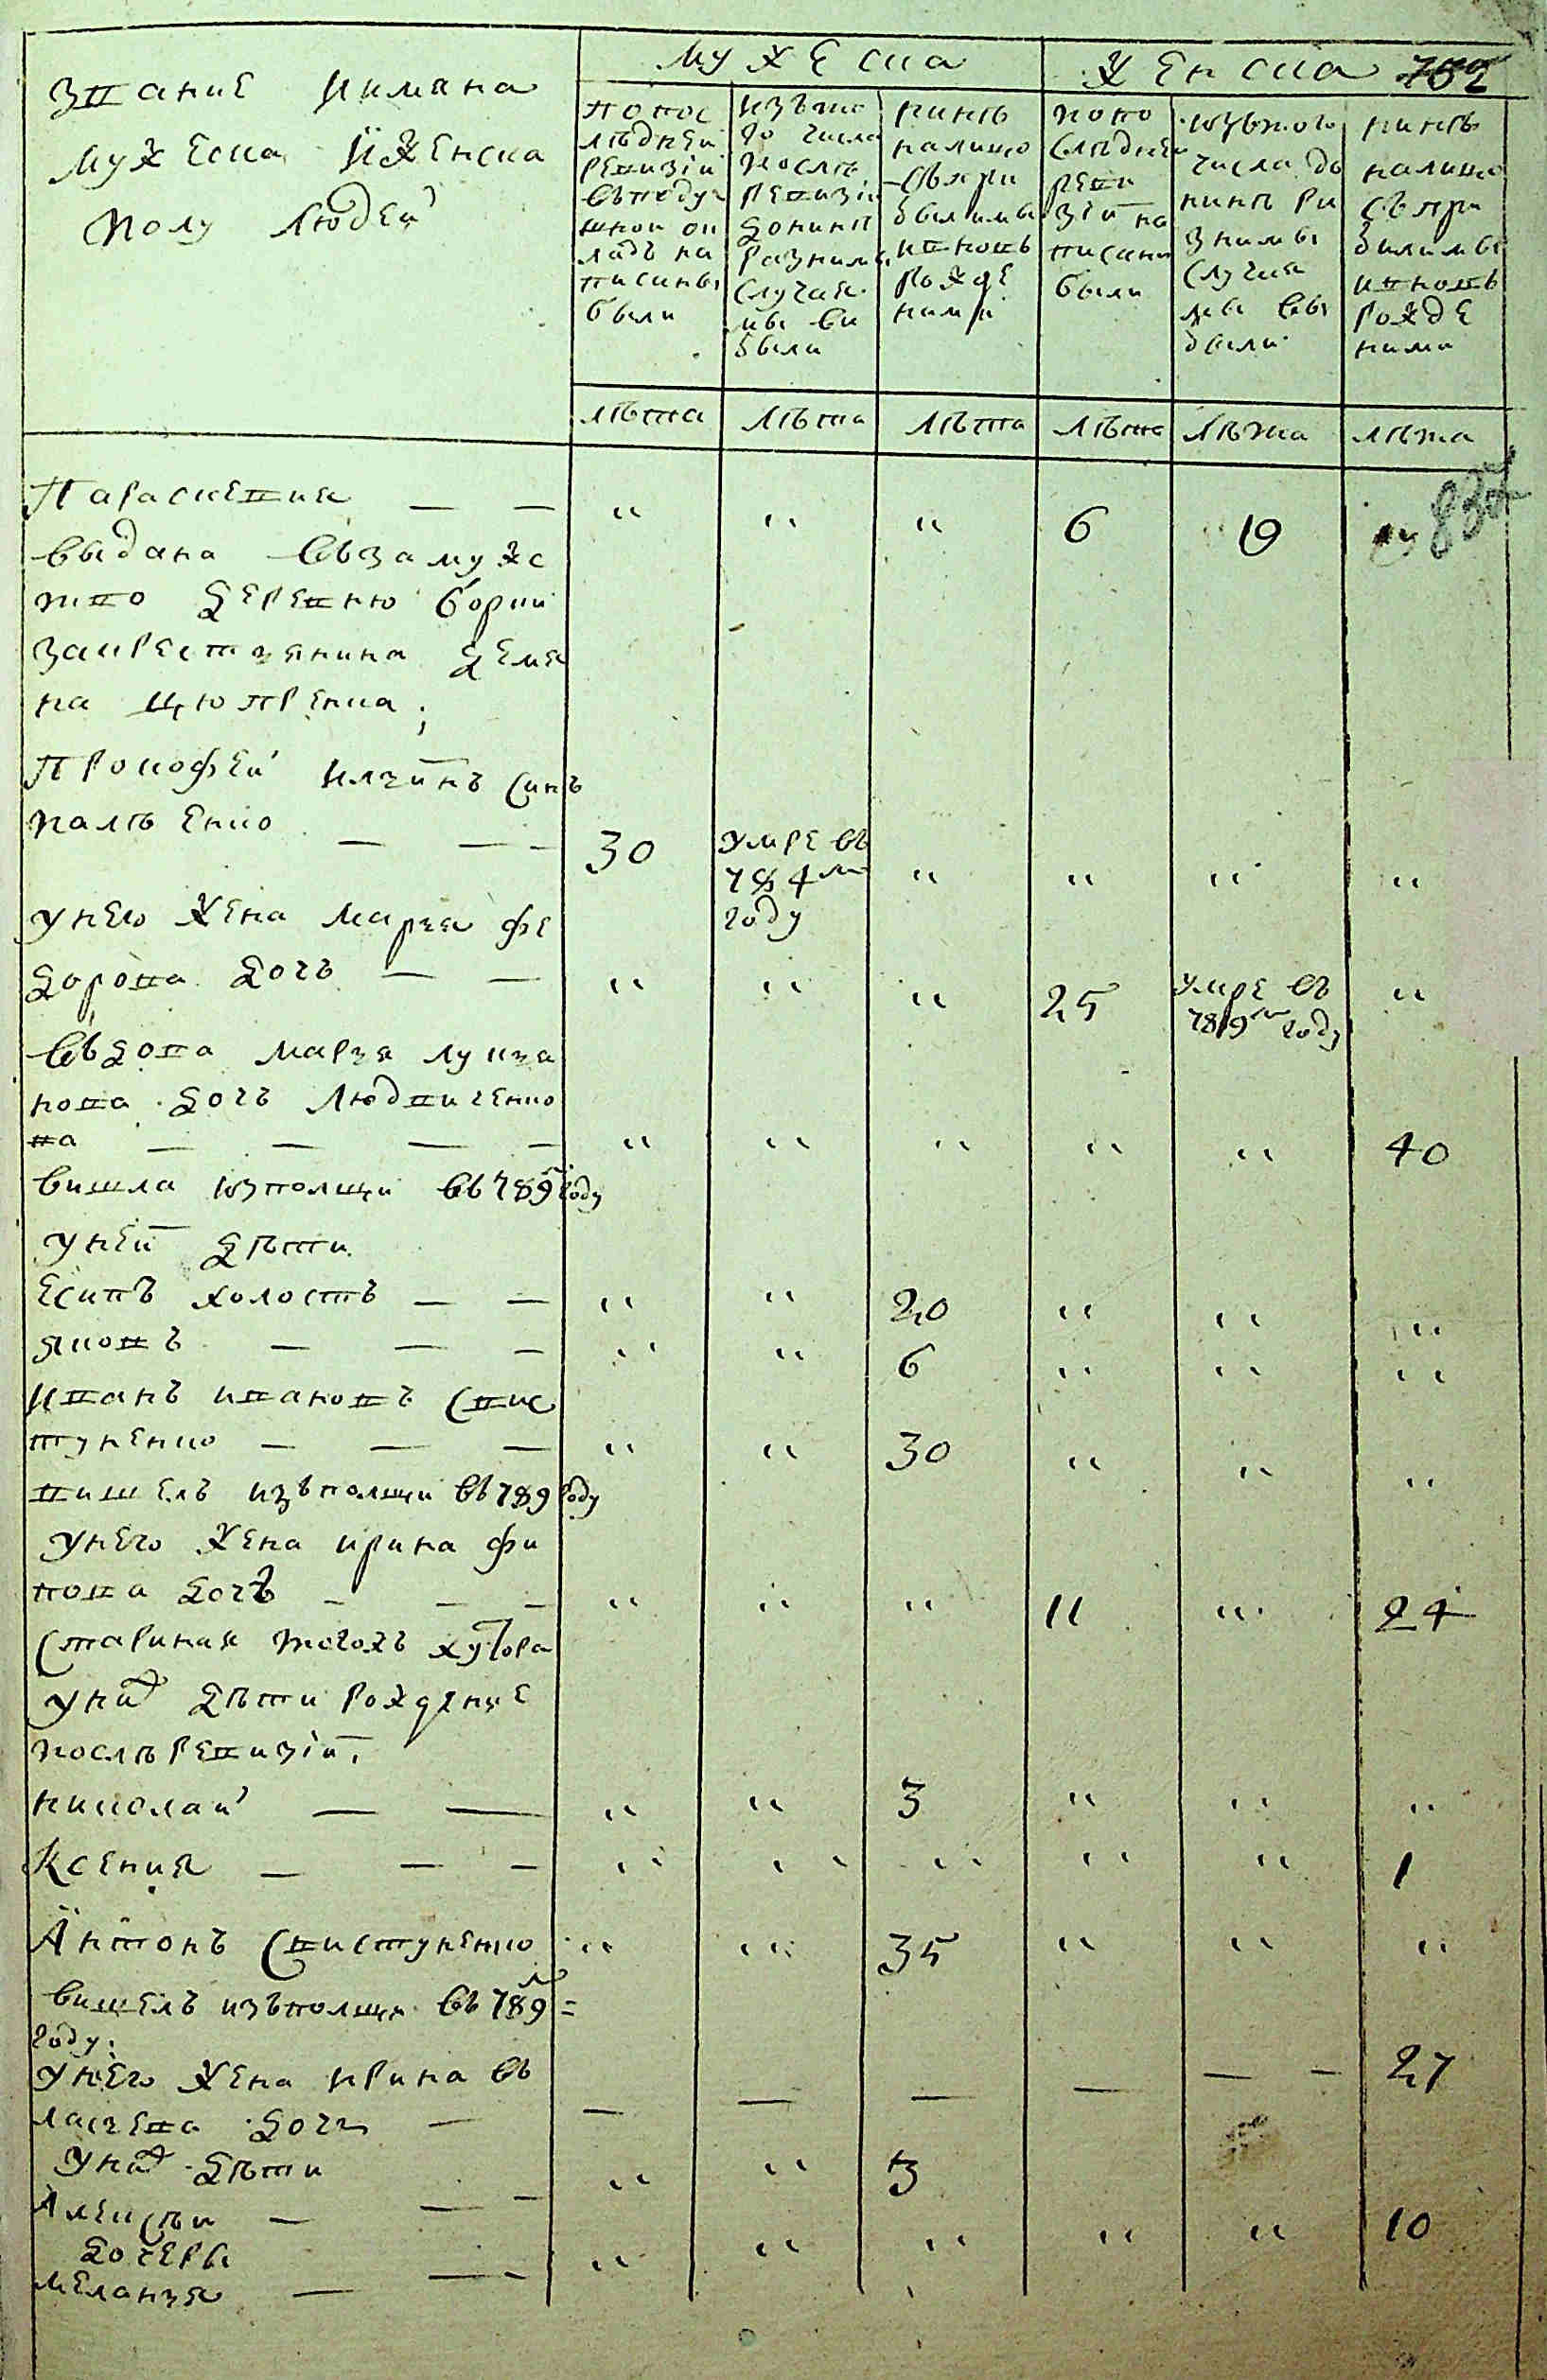 мужеска
женска 752
звание иимяна
мужеска иженска
полу людей
попос
лѣдней
ревизiи
въподу
шной ок
ладъ на
писаны
были
изъто
го числа
послѣ
ревизiи
донинѣ
разними
случая
ми ви
были
нинѣ
налицо
съпри
былими
ивновь
рожде
ними
попо
слѣдней
реви
зiи на
писани
были
изътого
числа до
нинѣ ра
зними
случая
ми вы
были
нинѣ
налицо
съпри
былими
ивновь
рожде
ними
лѣта лѣта лѣта лѣта лѣта лѣта
Параскевия — — " " " 6 19 834
выдана възамужс
тво деревню борки
закрестянина демя
на цюпренка;
Прокофей илиинъ синъ
палѣенко — — — 30 умре въ 784м году " " " "
унего жена мария фе
дорова дочъ — — " " " 25 умре въ 789м году "
въдова мария лукия
нова дочъ людвиченко
ва — — — — " " " " " 40
вишла изполщи въ789м году
уней дѣти
есипъ холостъ — — " " 20 " " "
яковъ — — — " " 6 " " "
иванъ ивановъ свис
туненко — — — " " 30 " " "
вишелъ изъполщи въ789 году
унего жена ирина фи
пова дочъ — — — " " " 11 " 24
стариная тогожъ хутора
уних дѣти рождение
послѣревизiи,
николай — — " " 3 " " "
Ксения — — — " " " " " 1
Антонъ свистуненко " " 35 " " "
вишелъ изъполщи въ789м =
году:
унего жена ирина въ
ласиева дочъ — — — — — — — 27
уних дѣти
Алексѣи — — — " " 3
дочеры
мелания — — — " " " " " 10